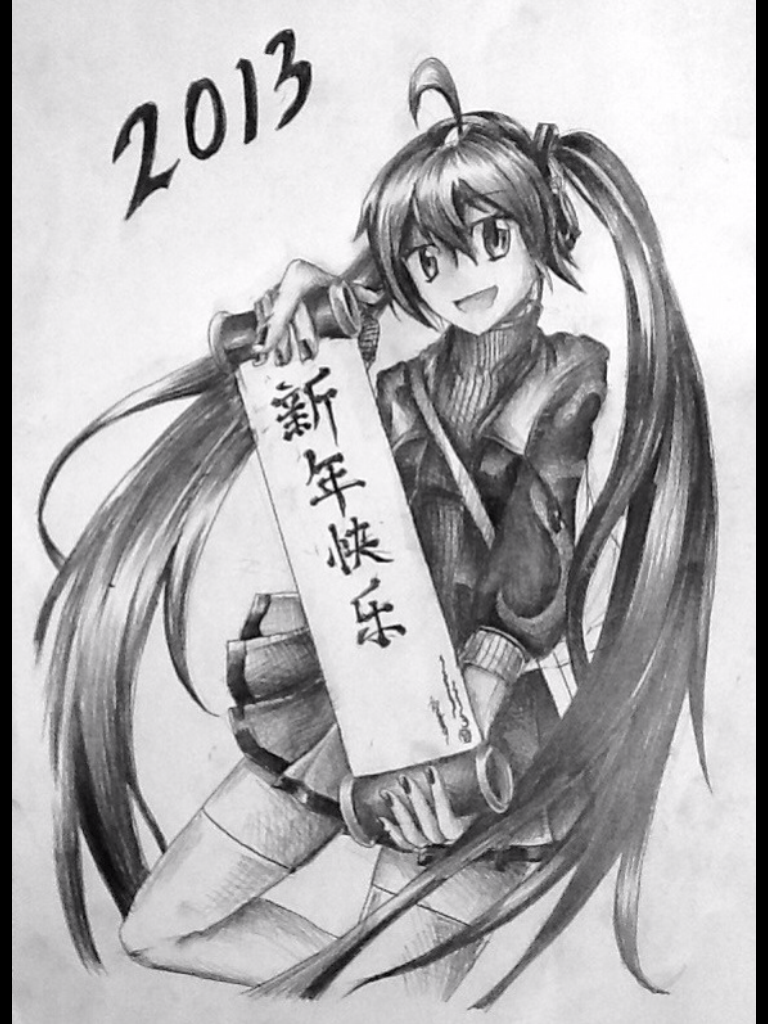 2013
新年快乐